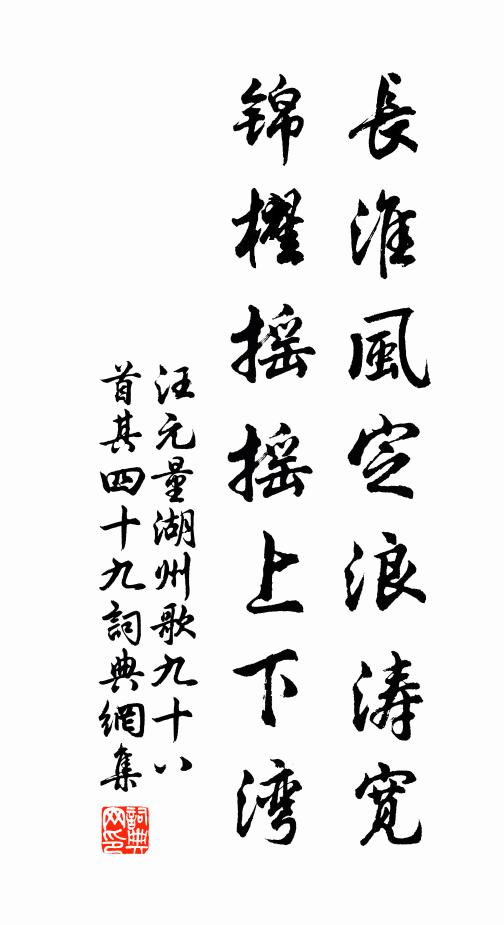 長淮風定浪涛寬
锦櫂摇摇上下湾
汪元量湖州歌九十八
首其四十九詞典網集
詞典
网印